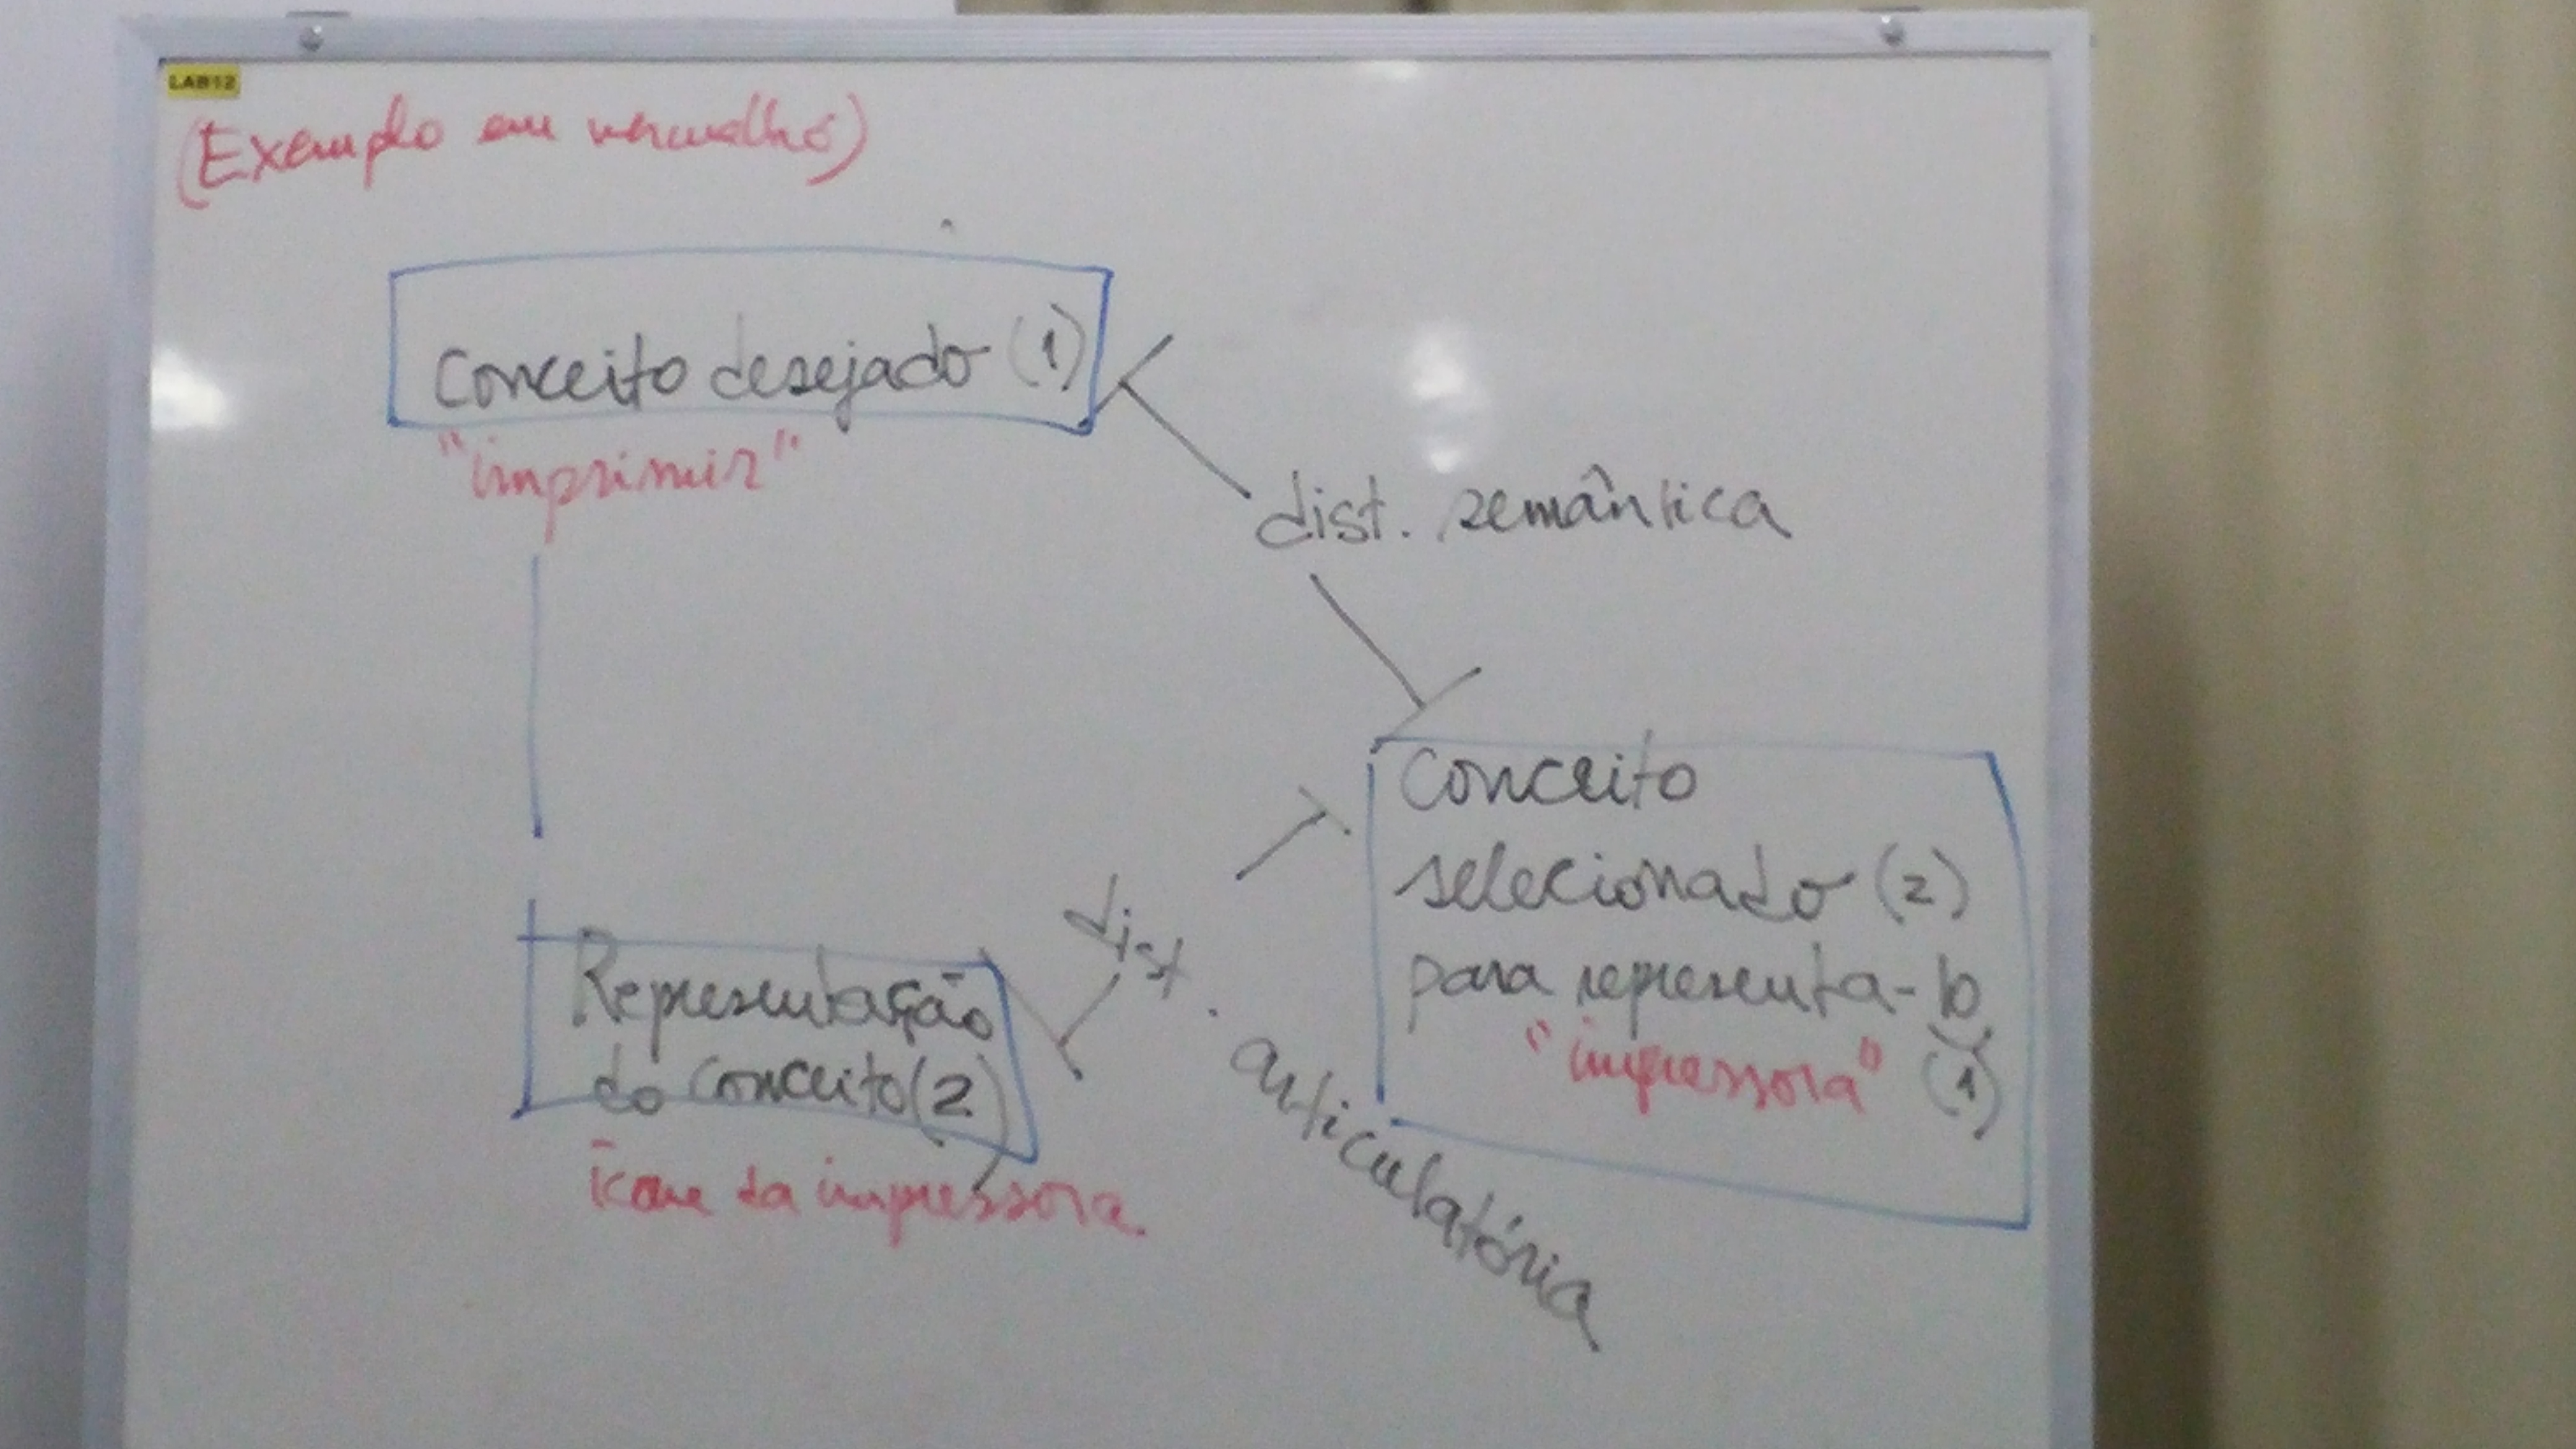 LAB12
(Exemplo em vermelho)
Conceito desejado (1)
"imprimir"
dist. semântica
Conceito
selecionado (2)
para representa-lo
"impressora" (1)
dist. articulatória
Representação
do conceito (2)
ícone da impressora